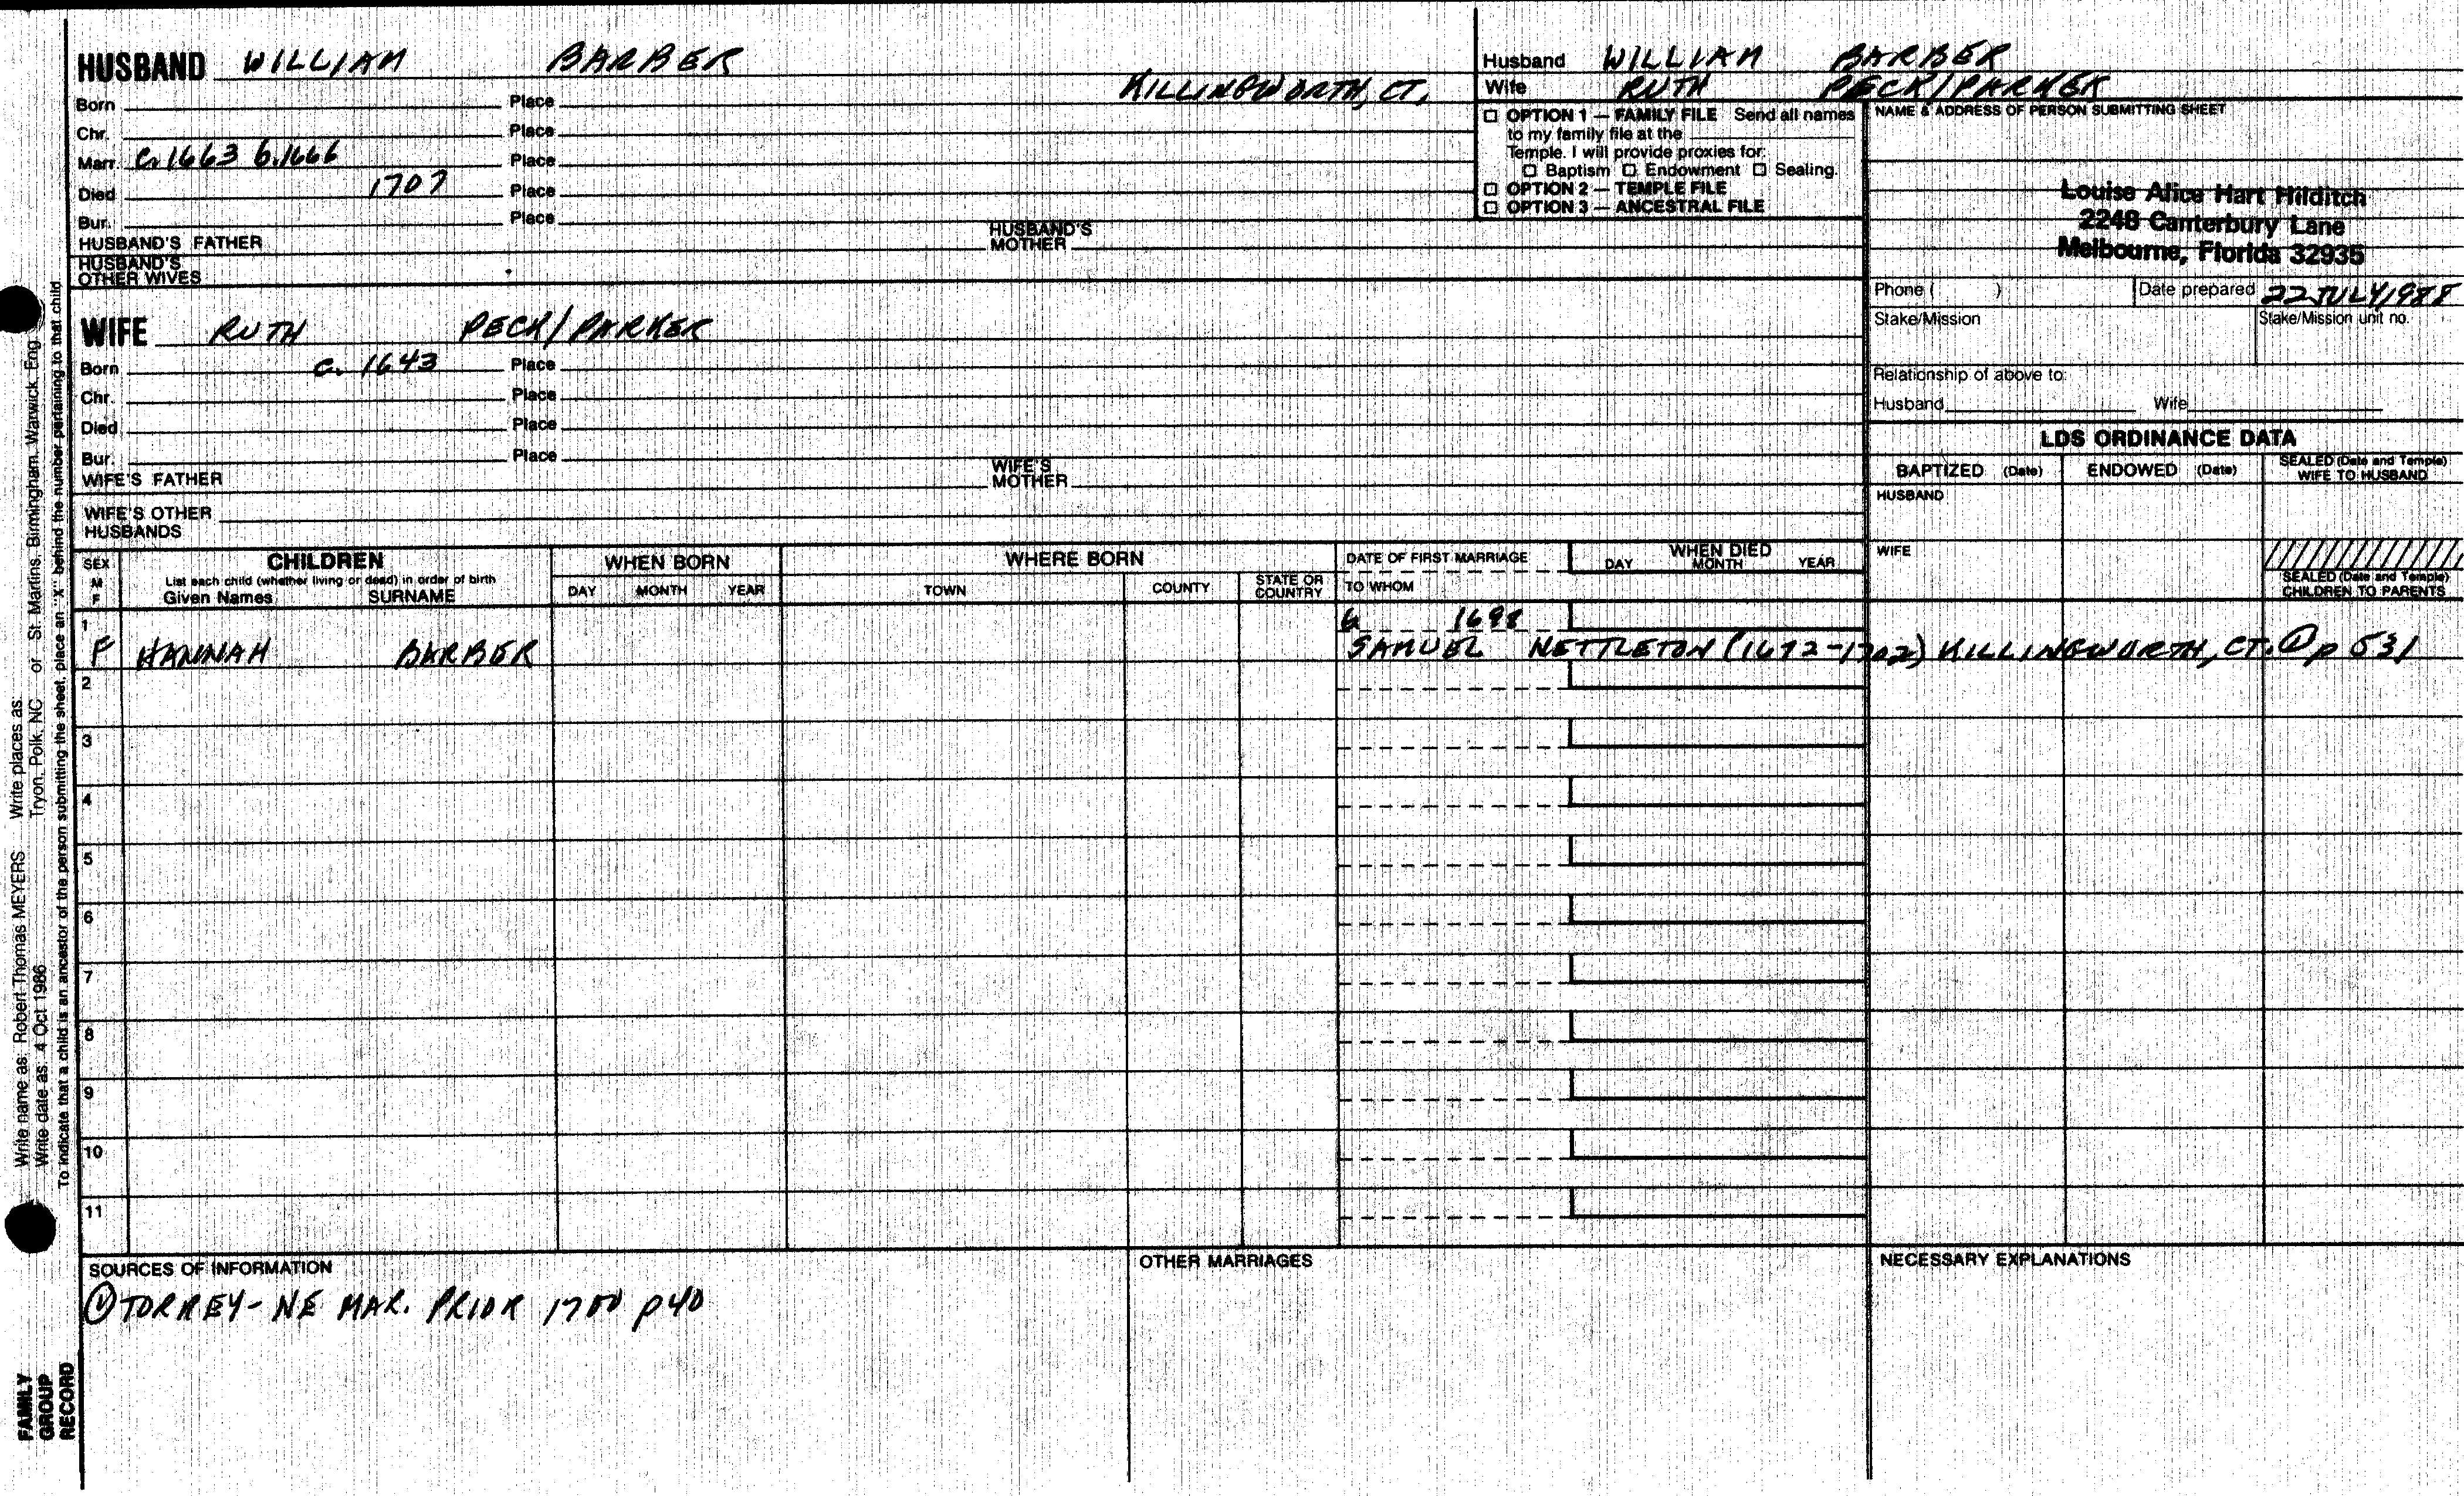 HUSBAND WILLIAM BARBER
KILLINGWORTH, CT.
Born Place
Chr. Place
Marr. c.1663 b.1666 Place
Died 1707 Place
Bur. Place
HUSBAND'S FATHER HUSBAND'S MOTHER
HUSBAND'S OTHER WIVES
WIFE RUTH PECK/PARKER
Born c. 1643 Place
Chr. Place
Died Place
Bur. Place
WIFE'S FATHER WIFE'S MOTHER
WIFE'S OTHER HUSBANDS
Husband WILLIAM BARBER
Wife RUTH PECK/PARKER
☐ OPTION 1 — FAMILY FILE Send all names
to my family file at the
Temple. I will provide proxies for:
☐ Baptism ☐ Endowment ☐ Sealing.
☐ OPTION 2 — TEMPLE FILE
☐ OPTION 3 — ANCESTRAL FILE
NAME & ADDRESS OF PERSON SUBMITTING SHEET
Louise Alice Hart Hilditch
2248 Canterbury Lane
Melbourne, Florida 32935
Phone ( ) Date prepared 22 JULY 1988
Stake/Mission Stake/Mission unit no.
Relationship of above to:
Husband Wife
LDS ORDINANCE DATA
BAPTIZED (Date) ENDOWED (Date) SEALED (Date and Temple) WIFE TO HUSBAND
HUSBAND
WIFE
SEALED (Date and Temple) CHILDREN TO PARENTS
SEX M F CHILDREN WHEN BORN WHERE BORN DATE OF FIRST MARRIAGE WHEN DIED
List each child (whether living or dead) in order of birth
Given Names SURNAME DAY MONTH YEAR TOWN COUNTY STATE OR COUNTRY TO WHOM DAY MONTH YEAR
1 b 1698
F HANNAH BARBER SAMUEL NETTLETON (1672-1702) KILLINGWORTH, CT. ① p 531
2
3
4
5
6
7
8
9
10
11
SOURCES OF INFORMATION
① TORREY - NE MAR. PRIOR 1700 p40
OTHER MARRIAGES
NECESSARY EXPLANATIONS
Write name as: Robert Thomas MEYERS Write places as:
Write date as: 4 Oct 1986 Tryon, Polk, NC or St. Martins, Birmingham, Warwick, Eng
To indicate that a child is an ancestor of the person submitting the sheet, place an "X" behind the number pertaining to that child
FAMILY
GROUP
RECORD